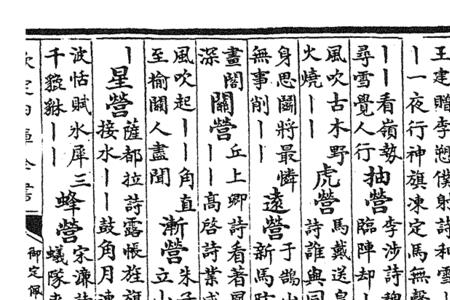 王建贈李愬僕射詩和雪
丨一夜行神旗凍定馬無聲
丨丨看嶺勢
尋雪覺人行
抽營
李涉詩
臨陣却丨
風吹古木野
火燒丨丨
虎營
馬戴送皇
詩誰與同
身思鬪將最憐
無事削丨丨
遠營
于鵠
新馬防
畫閣
深
鬭營
丘上卿詩看著
丨丨高啓詩業
風吹起丨丨角直
至榆關人盡聞
漸營
朱子
立小
丨
星營
薩都拉詩露帳旌旗
接水丨丨鼓角月連
波怙賦氷犀三
千豼貅丨丨
蜂營
宋濂詩
蟻隊來
欽定四庫全書
御定佩